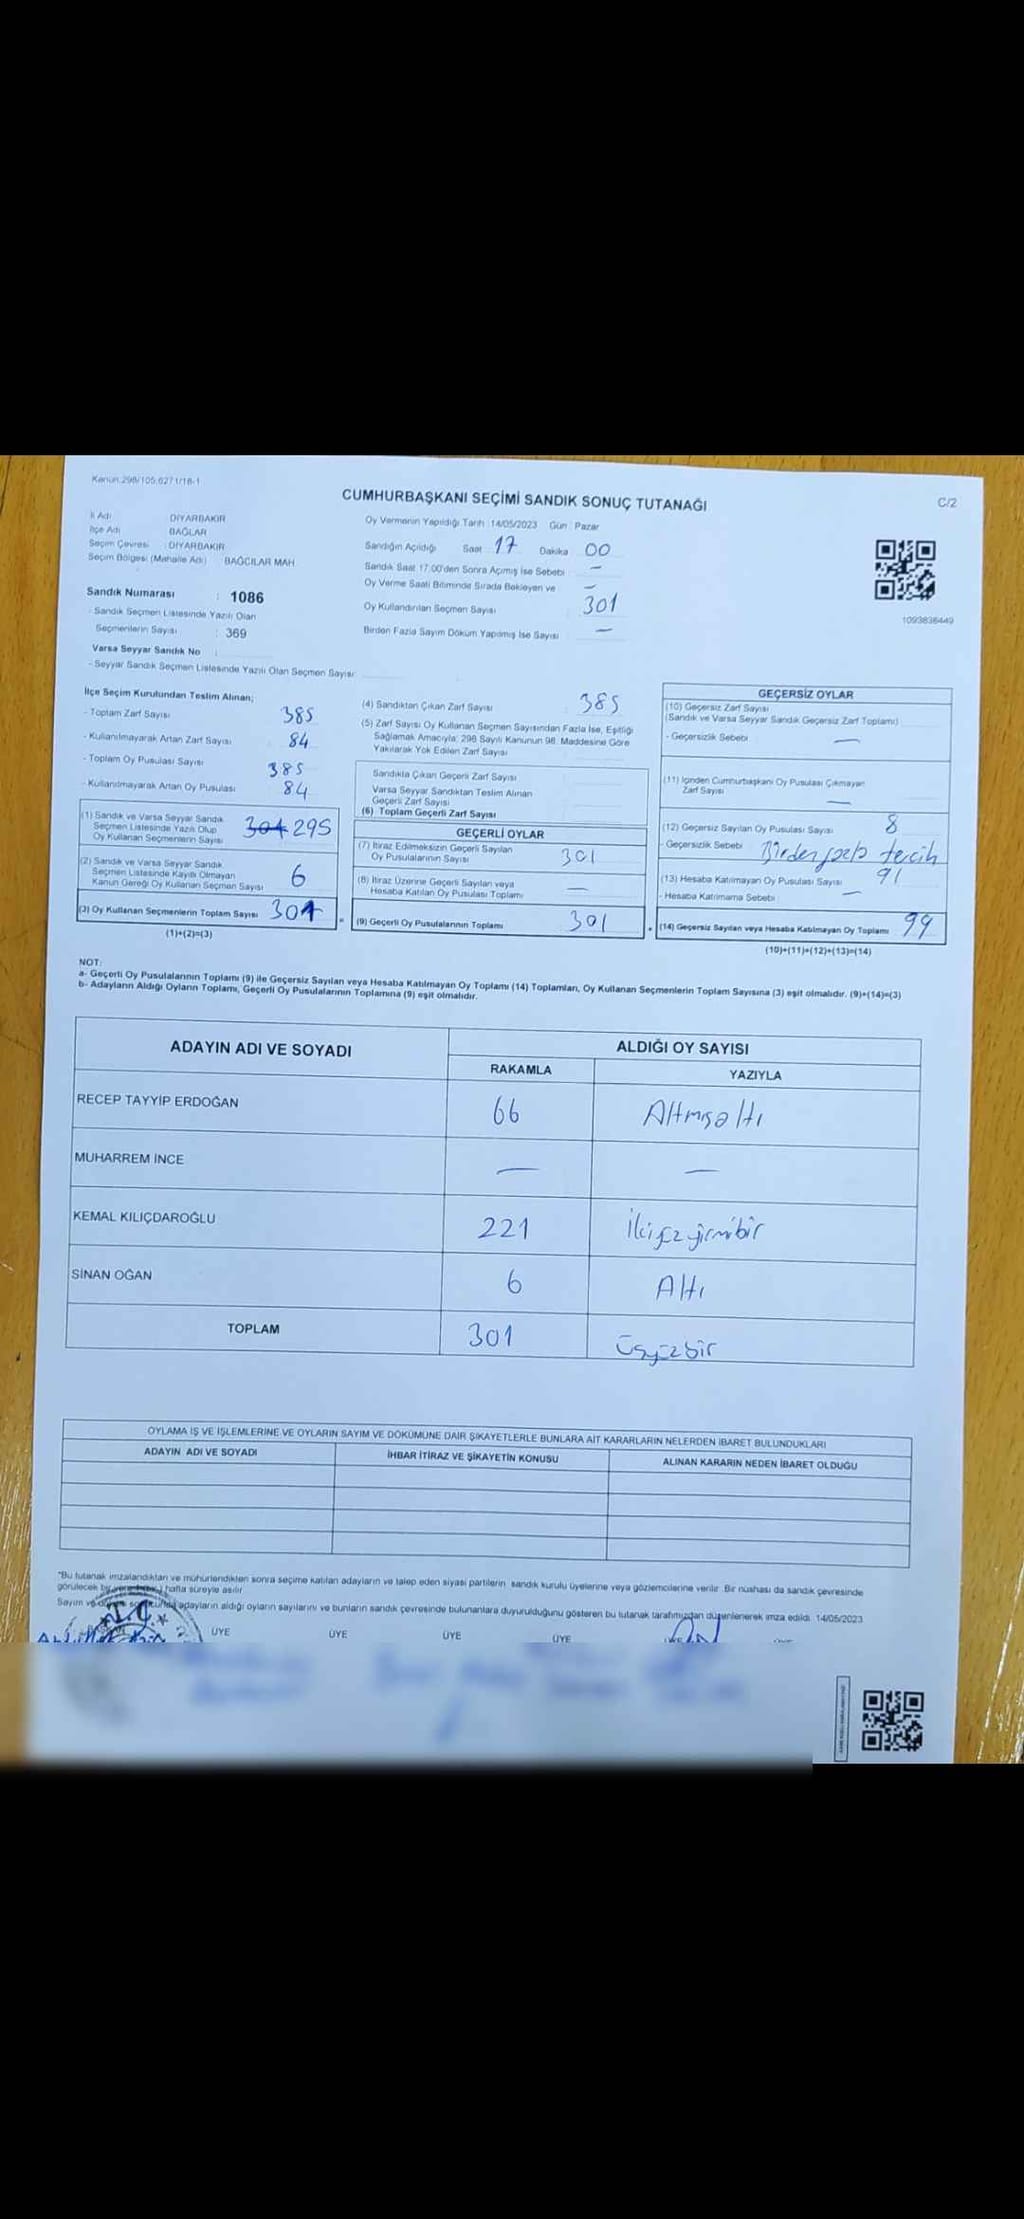 Kanun:298/105,6271/18-1
CUMHURBAŞKANI SEÇİMİ SANDIK SONUÇ TUTANAĞI
C/2
İl Adı DİYARBAKIR
İlçe Adı BAĞLAR
Seçim Çevresi : DİYARBAKIR
Seçim Bölgesi (Mahalle Adı) BAĞCILAR MAH
Sandık Numarası : 1086
- Sandık Seçmen Listesinde Yazılı Olan
Seçmenlerin Sayısı : 369
Varsa Seyyar Sandık No :
- Seyyar Sandık Seçmen Listesinde Yazılı Olan Seçmen Sayısı:
Oy Vermenin Yapıldığı Tarih :14/05/2023 Gün : Pazar
Sandığın Açıldığı Saat 17 Dakika 00
Sandık Saat 17:00'den Sonra Açılmış İse Sebebi : —
Oy Verme Saati Bitiminde Sırada Bekleyen ve —
Oy Kullandırılan Seçmen Sayısı : 301
Birden Fazla Sayım Döküm Yapılmış İse Sayısı —
1093636449
İlçe Seçim Kurulundan Teslim Alınan;
- Toplam Zarf Sayısı 385
- Kullanılmayarak Artan Zarf Sayısı 84
- Toplam Oy Pusulası Sayısı 385
- Kullanılmayarak Artan Oy Pusulası 84
(1) Sandık ve Varsa Seyyar Sandık
Seçmen Listesinde Yazılı Olup
Oy Kullanan Seçmenlerin Sayısı 301 295
(2) Sandık ve Varsa Seyyar Sandık
Seçmen Listesinde Kayıtlı Olmayan
Kanun Gereği Oy Kullanan Seçmen Sayısı 6
(3) Oy Kullanan Seçmenlerin Toplam Sayısı 301
(1)+(2)=(3)
(4) Sandıktan Çıkan Zarf Sayısı : 385
(5) Zarf Sayısı Oy Kullanan Seçmen Sayısından Fazla İse, Eşitliği
Sağlamak Amacıyla; 298 Sayılı Kanunun 98. Maddesine Göre
Yakılarak Yok Edilen Zarf Sayısı
Sandıkta Çıkan Geçerli Zarf Sayısı
Varsa Seyyar Sandıktan Teslim Alınan
Geçerli Zarf Sayısı
(6) Toplam Geçerli Zarf Sayısı
GEÇERLİ OYLAR
(7) İtiraz Edilmeksizin Geçerli Sayılan
Oy Pusulalarının Sayısı : 301
(8) İtiraz Üzerine Geçerli Sayılan veya
Hesaba Katılan Oy Pusulası Toplamı —
= (9) Geçerli Oy Pusulalarının Toplamı : 301
GEÇERSİZ OYLAR
(10) Geçersiz Zarf Sayısı
(Sandık ve Varsa Seyyar Sandık Geçersiz Zarf Toplamı)
- Geçersizlik Sebebi : —
(11) İçinden Cumhurbaşkanı Oy Pusulası Çıkmayan
Zarf Sayısı —
(12) Geçersiz Sayılan Oy Pusulası Sayısı 8
- Geçersizlik Sebebi : Birden fazla tercih
(13) Hesaba Katılmayan Oy Pusulası Sayısı 91
- Hesaba Katılmama Sebebi : —
+ (14) Geçersiz Sayılan veya Hesaba Katılmayan Oy Toplamı 99
(10)+(11)+(12)+(13)=(14)
NOT:
a- Geçerli Oy Pusulalarının Toplamı (9) ile Geçersiz Sayılan veya Hesaba Katılmayan Oy Toplamı (14) Toplamları, Oy Kullanan Seçmenlerin Toplam Sayısına (3) eşit olmalıdır. (9)+(14)=(3)
b- Adayların Aldığı Oyların Toplamı, Geçerli Oy Pusulalarının Toplamına (9) eşit olmalıdır.
ADAYIN ADI VE SOYADI
ALDIĞI OY SAYISI
RAKAMLA YAZIYLA
RECEP TAYYİP ERDOĞAN 66 Altmışaltı
MUHARREM İNCE — —
KEMAL KILIÇDAROĞLU 221 İkiyüzyirmibir
SİNAN OĞAN 6 Altı
TOPLAM 301 Üçyüzbir
OYLAMA İŞ VE İŞLEMLERİNE VE OYLARIN SAYIM VE DÖKÜMÜNE DAİR ŞİKAYETLERLE BUNLARA AİT KARARLARIN NELERDEN İBARET BULUNDUKLARI
ADAYIN ADI VE SOYADI İHBAR İTİRAZ VE ŞİKAYETİN KONUSU ALINAN KARARIN NEDEN İBARET OLDUĞU
*Bu tutanak imzalandıktan ve mühürlendikten sonra seçime katılan adayların ve talep eden siyasi partilerin sandık kurulu üyelerine veya gözlemcilerine verilir. Bir nüshası da sandık çevresinde
görülecek bir yere hafta süreyle asılır.
Sayım ve adayların aldığı oyların sayılarını ve bunların sandık çevresinde bulunanlara duyurulduğunu gösteren bu tutanak tarafımızdan düzenlenerek imza edildi. 14/05/2023
T.C.
ÜYE ÜYE ÜYE ÜYE